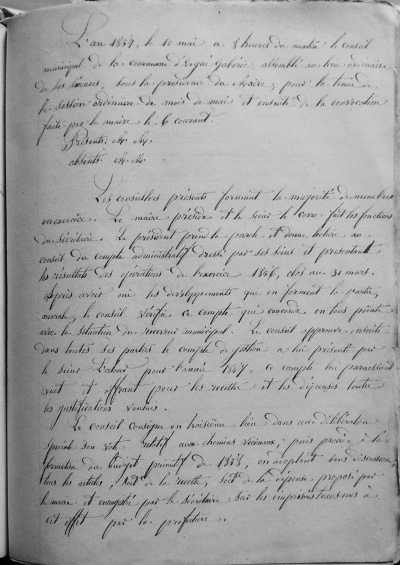 L'an 1857, le 10 mai à 8 heures du matin le conseil
municipal de la commune d'Ergué Gabéric, assemblé au lieu ordinaire
de ses séances, sous la présidence du Maire, pour la tenue de
la session ordinaire du mois de mai et ensuite de la convocation
faite par le maire le 6 courant.
Présents: M. M.
absents: M. M.
Les conseillers présents formant la majorité des membres
en exercice. Le maire préside et le sieur Le Coza fait les fonctions
du Secrétaire. Le président prend la parole et donne lecture au
conseil du compte administratif dressé par ses soins et présentant
les résultats des opérations de l'exercice 1856, clos au 31 mars.
après avoir ouï les développements qui en forment la partie
morale, le conseil vérifie ce compte qui concorde en tous points
avec la situation du receveur municipal. Le conseil approuve ensuite
dans toutes ses parties le compte de gestion à lui présenté par
le sieur pour l'année 1857, ce compte lui paraissant
exact et offrant pour les recettes et les dépenses toutes
les justifications voulues.
Le conseil consigne en troisième lieu dans une délibération
spéciale son vote relatif aux chemins vicinaux, puis procède à la
formation du budget primitif de 1858, en acceptant sans discussion
tous les articles, soit de la recette, soit de la dépense proposé par
le maire et enregistrés par le Secrétaire sur les imprimés transmis à
cet effet par la préfecture.